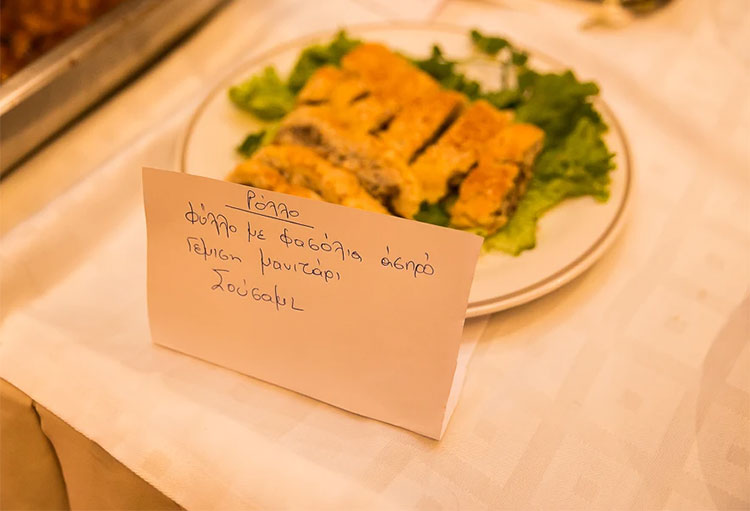 Ρόλλο
φύλλο με φασόλια άσπρο
Γέμιση μανιτάρι
Σούσαμι